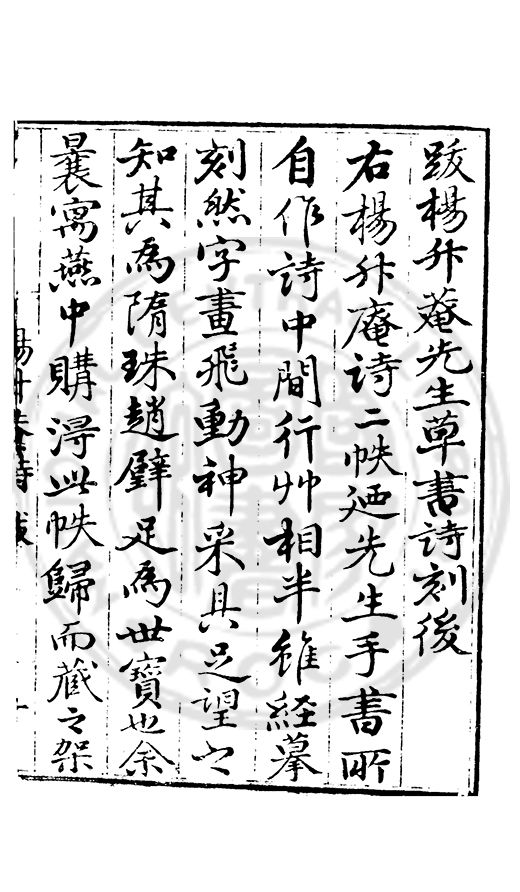 跋楊升菴先生草書詩刻後
右楊升庵詩二帙廼先生手書所
自作詩中間行艸相半雖經摹
刻然字畫飛動神采具足望之
知其為隋珠趙璧足為世寶也余
曩寓燕中購淂此帙歸而藏之架